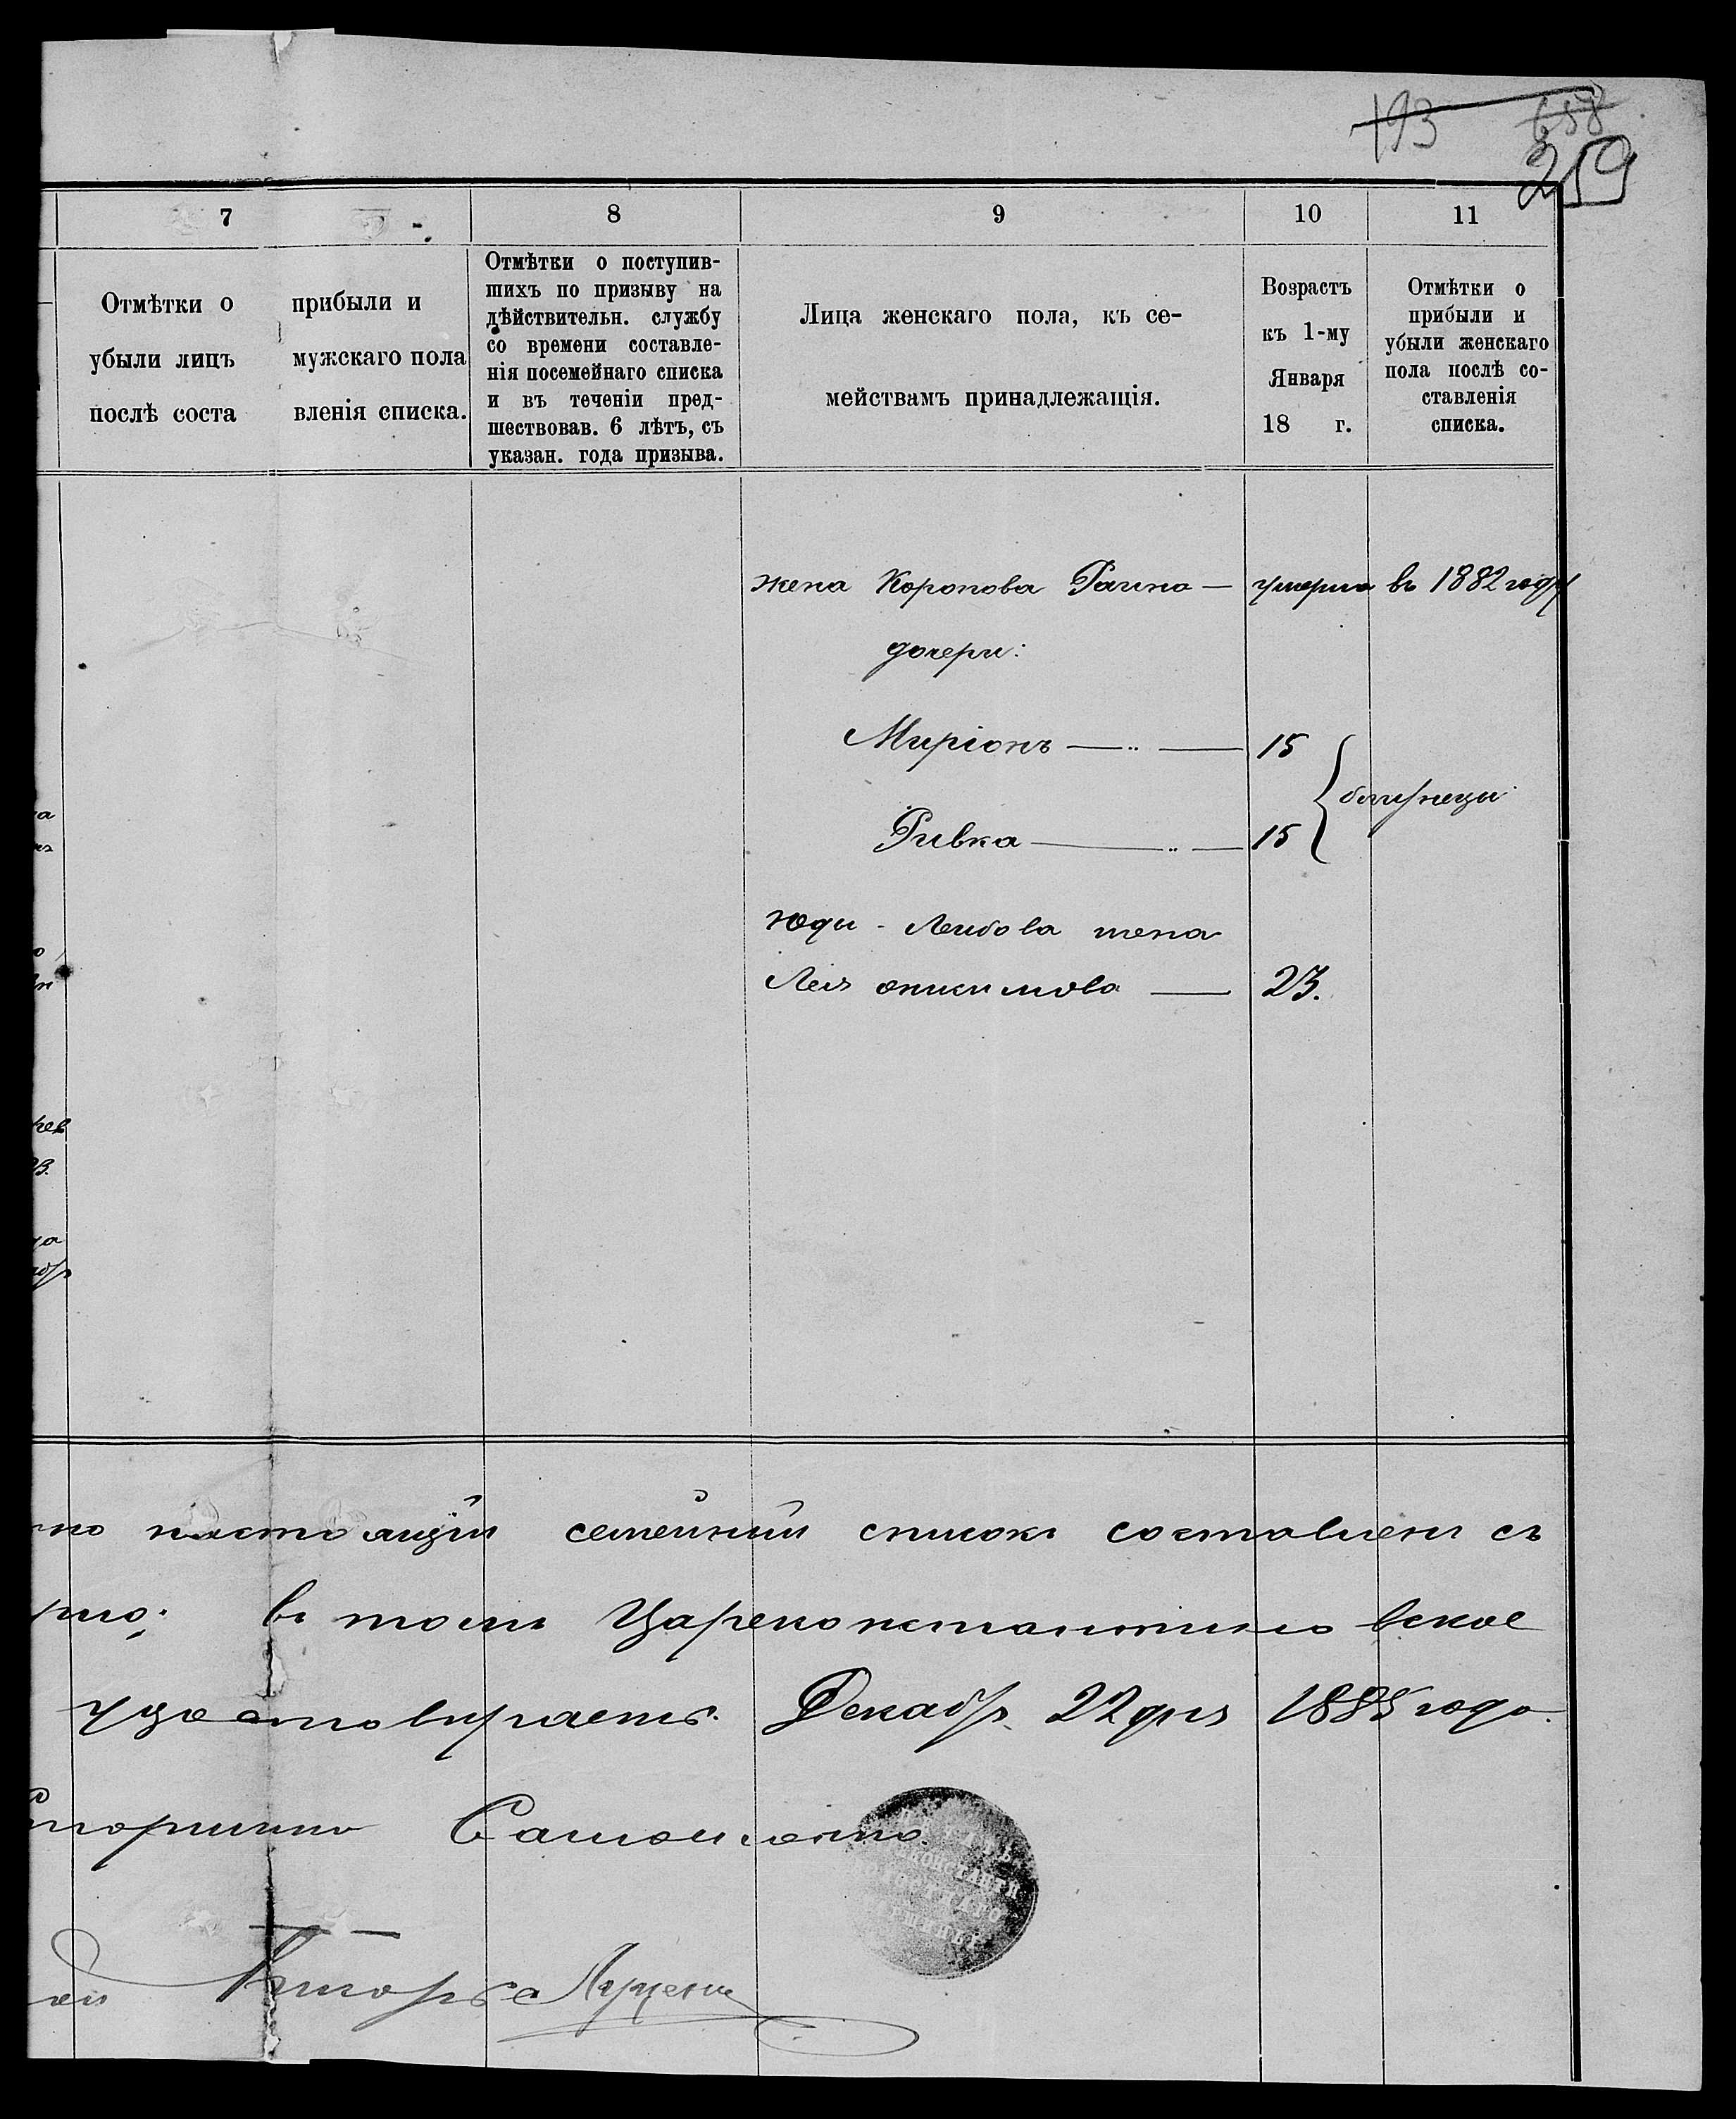 193 658
259
7 8 9 10 11
Отмѣтки о прибыли и
убыли лицъ мужскаго пола
послѣ соста вленія списка.
Отмѣтки о поступив-
шихъ по призыву на
дѣйствительн. службу
со времени составле-
нія посемейнаго списка
и въ теченіи пред-
шествовав. 6 лѣтъ, съ
указан. года призыва.
Лица женскаго пола, къ се-
мействамъ принадлежащія.
Возрастъ
къ 1-му
Января
18 г.
Отмѣтки о
прибыли и
убыли женскаго
пола послѣ со-
ставленія
списка.
жена Коропова Рашна — умерла въ 1882 году
дочери:
Миріонъ — 15
близнецы
Ривка — 15
Юди - Лейбова жена
Лея — 23.
настоящій семейный списокъ составленъ съ
въ томъ Цареконстантиновское
удостовѣряетъ. Декабр. 22 дня 1885 года.